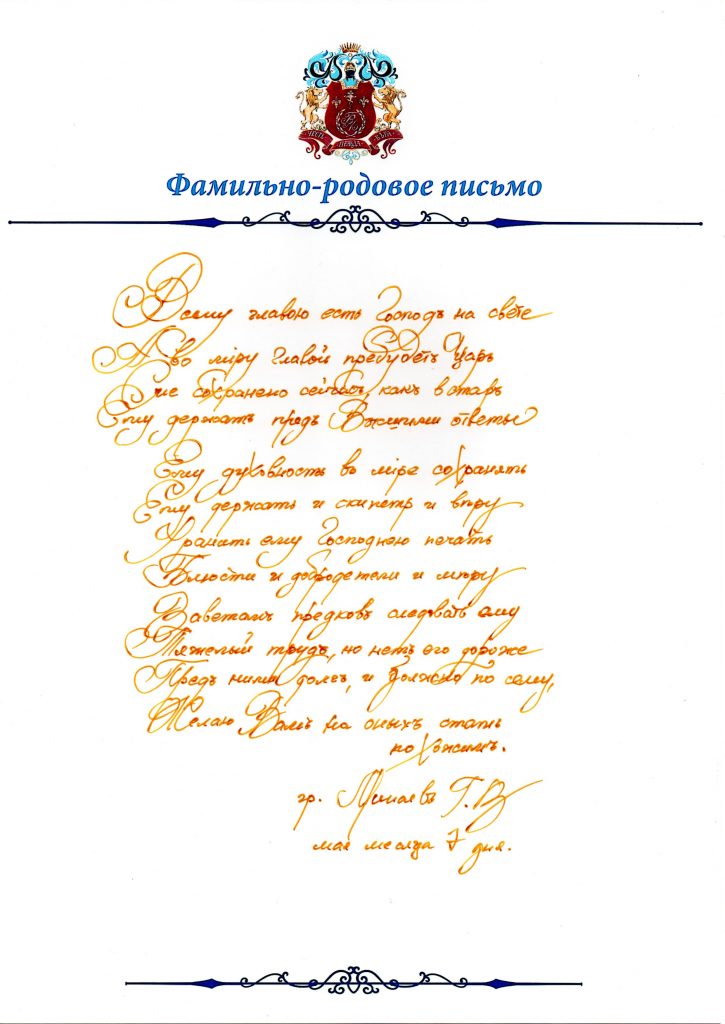 ЧЕСТЬ ПРАВДА ВЕРА
Фамильно-родовое письмо
Всему главою есть Господь на свѣте
А во мiру главой пребудетъ Царь
Сие сохранено сейчасъ, какъ встарь
Ему держать предъ Вышними ответы
Ему духовность въ мiре сохранять
Ему держать и скипетр и вѣру
Хранить ему Господнею печать
Блюсти и добродетели и мѣру
Заветамъ предковъ следовать ему
Тяжелый трудъ, но нетъ его дороже
Предъ ними долгъ, и должно по сему,
Желаю Вамъ на оныхъ стать
похожимъ.
гр. Минаевъ Г.В
мая месяца 7 дня.